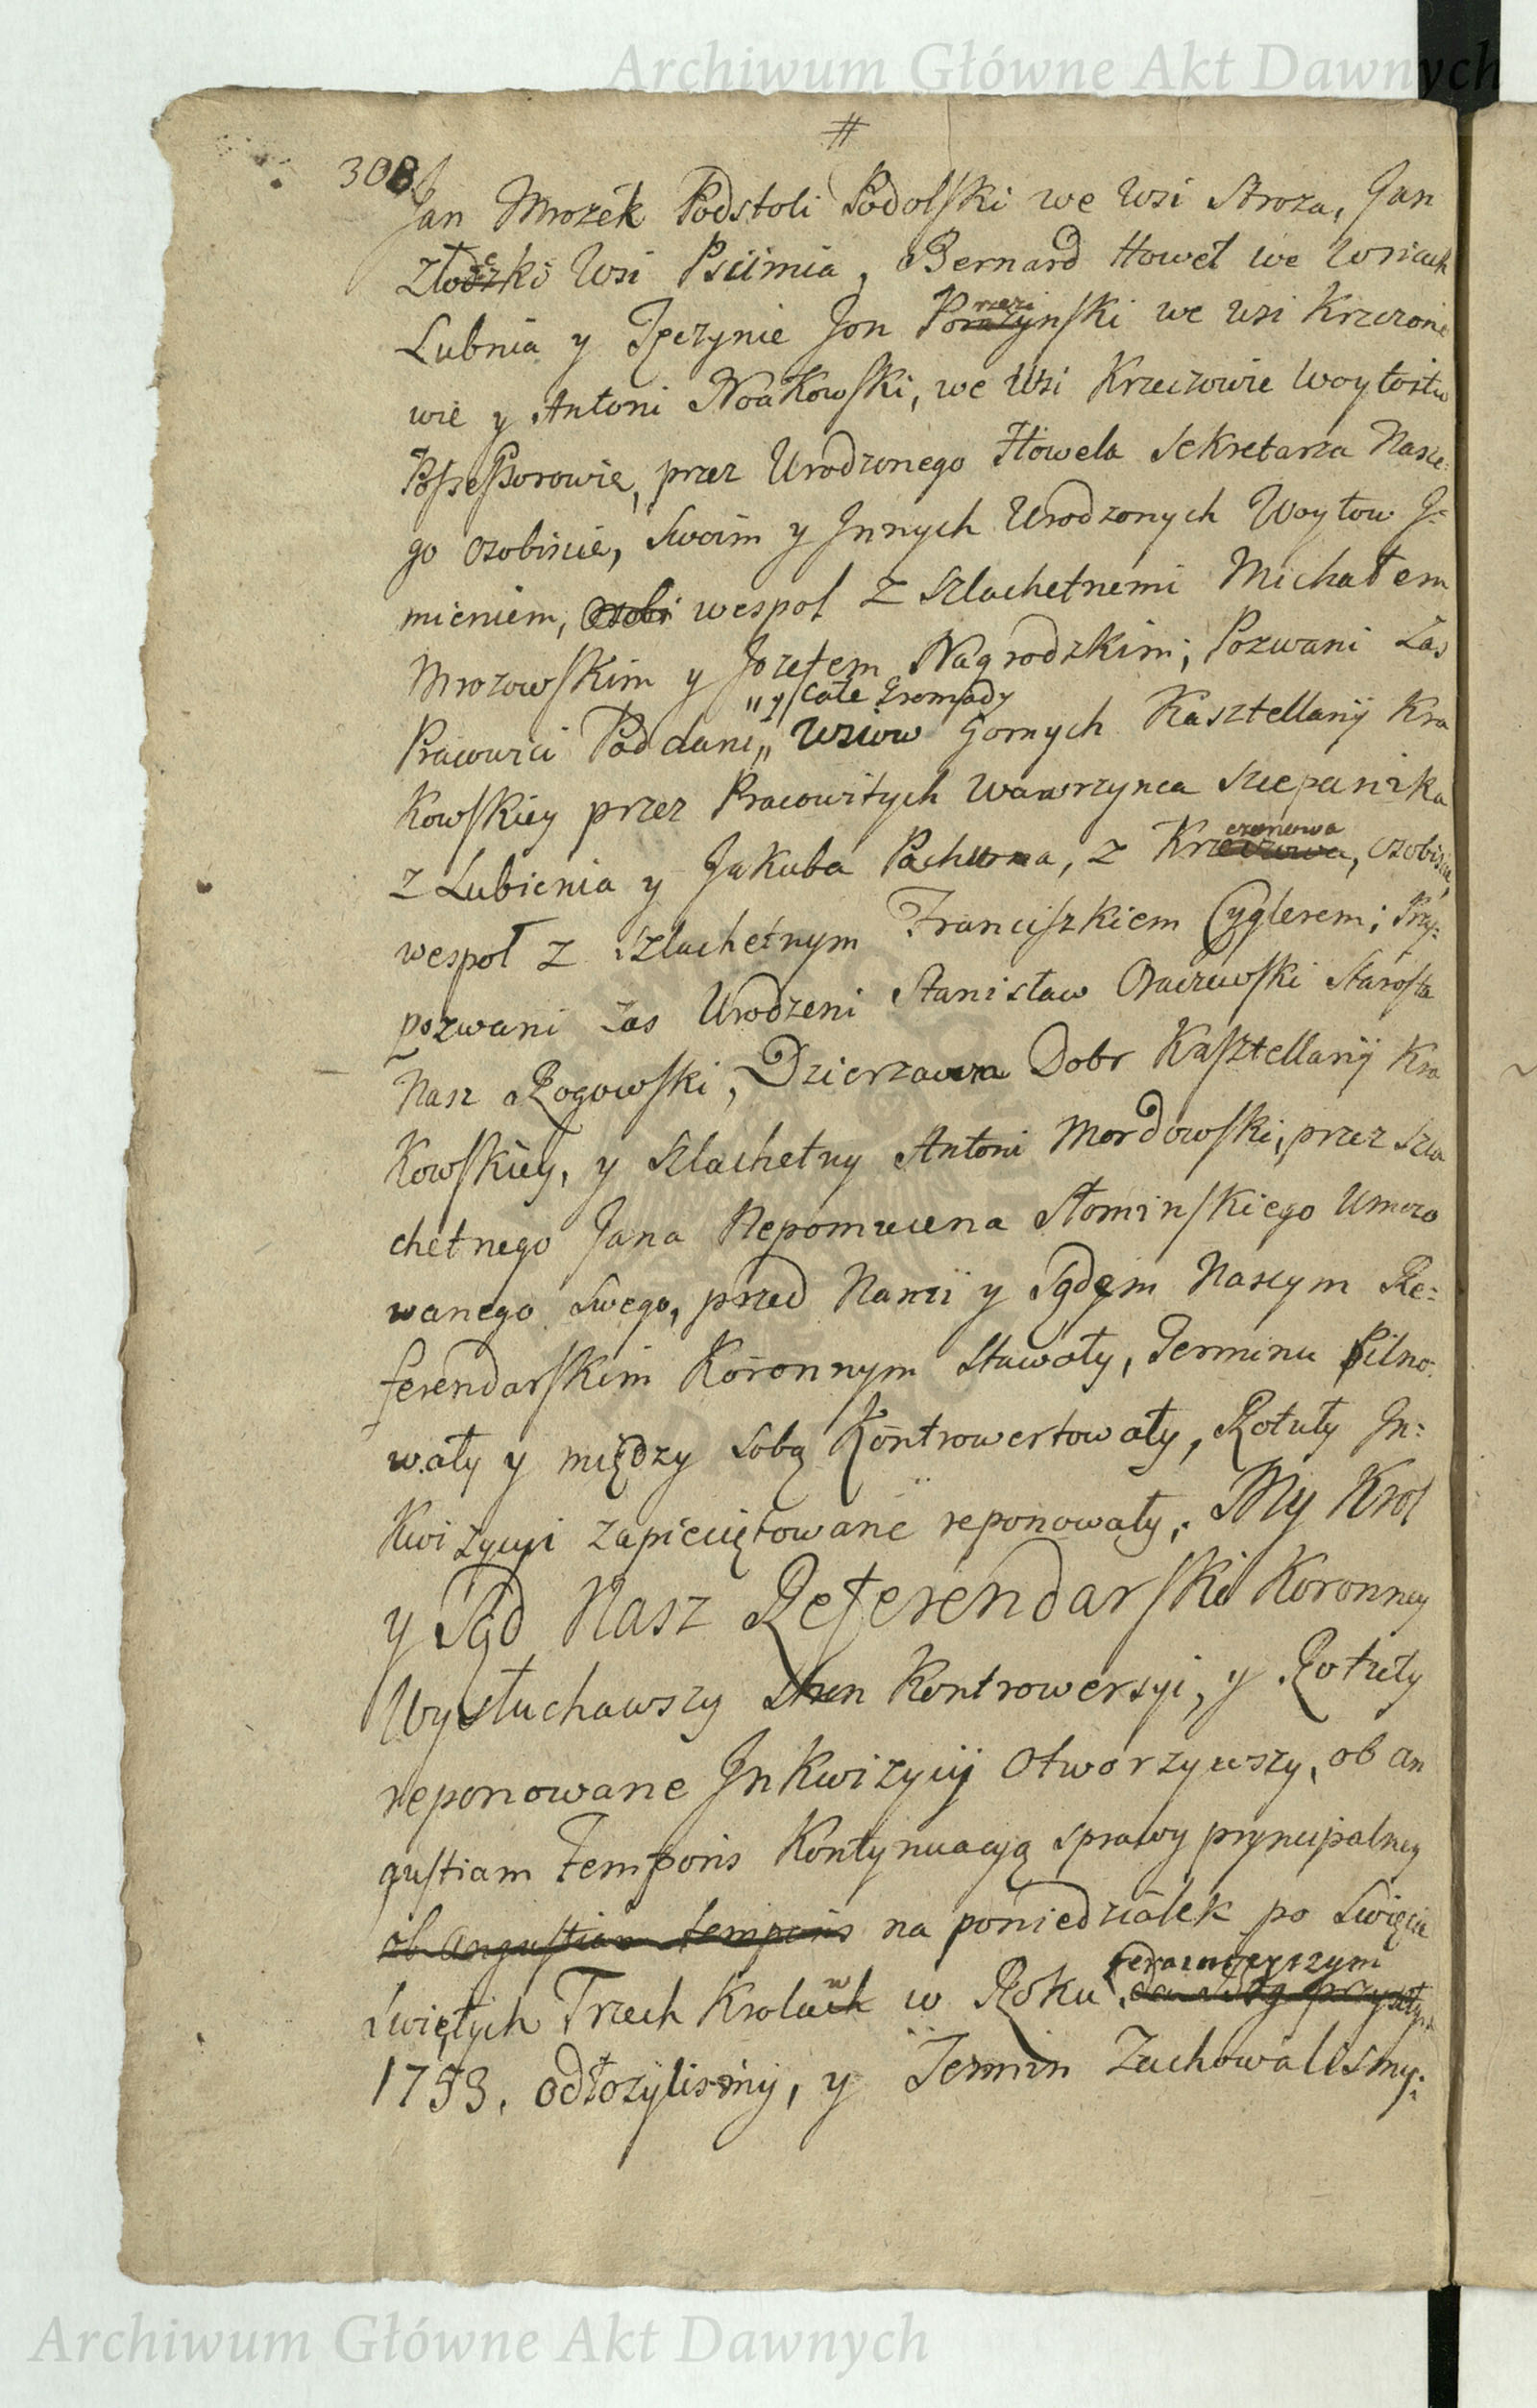 Archiwum Główne Akt Dawnych
#
308
Jan Mrozek Podstoli Podolski we Wsi Stroza, Jan
Wsi Pcimia, Bernard Howel we Wsiach
Lubnia y Tęczynie Jon we wsi Krzczono
wie y Antoni Noakowski, we Wsi Krzeczowie Woytostw
Possessorowie, przez Urodzonego Howela Sekretarza Nasze:
go Ozobiscie, Swoim y Innych Urodzonych Woytow J:
mieniem, Osobi wespoł z Szlachetnemi Michałem
Mrozowskim y Jozefem Nagrodzkim; Pozwani Zas
„y Całe Gromady
Pracowici Poddani„ Wsiow Gornych Kasztellanÿ Kra
Kowskiey przez Pracowitych Wawrzynca Szczepanika
czonowa
z Lubienia y Jakuba, z Krzeczowa, Ozobiscie,
wespoł z Szlachetnym Franciszkiem Cyglerem; Przy:
pozwani zas Urodzeni Stanisław Oraczewski Starosta
Nasz Rogowski, Dzierzawca Dobr Kasztellanÿ Kra
Kowskiey, y Szlachetny Antoni Mordowski, przez Szla
chetnego Jana Nepomucena Słominskiego Umoco
wanego Swego, przed Nami y Sądem Naszym Re:
ferendarskim Koronnym Stawały, Terminu Pilno:
wały y między Sobą Kontrowertowały, Rotuły In:
Kwizycyi zapieczętowane reponowały; My Krol
y Sąd Nasz Referendarski Koronny
Wysłuchawszy Stron Kontrowersyi, y Rotuły
reponowane Inkwizycyi Otworzywszy, ob an
gustiam temporis Kontynuacyą sprawy pryncypalney
ob angustiam temporis na poniedziałek po Swięcie
teraznieyszym
Swiętych Trzech Krolach w Roku da Bog przyszłym
1753. odłozylismy, y Termin Zachowalismy:
Archiwum Główne Akt Dawnych